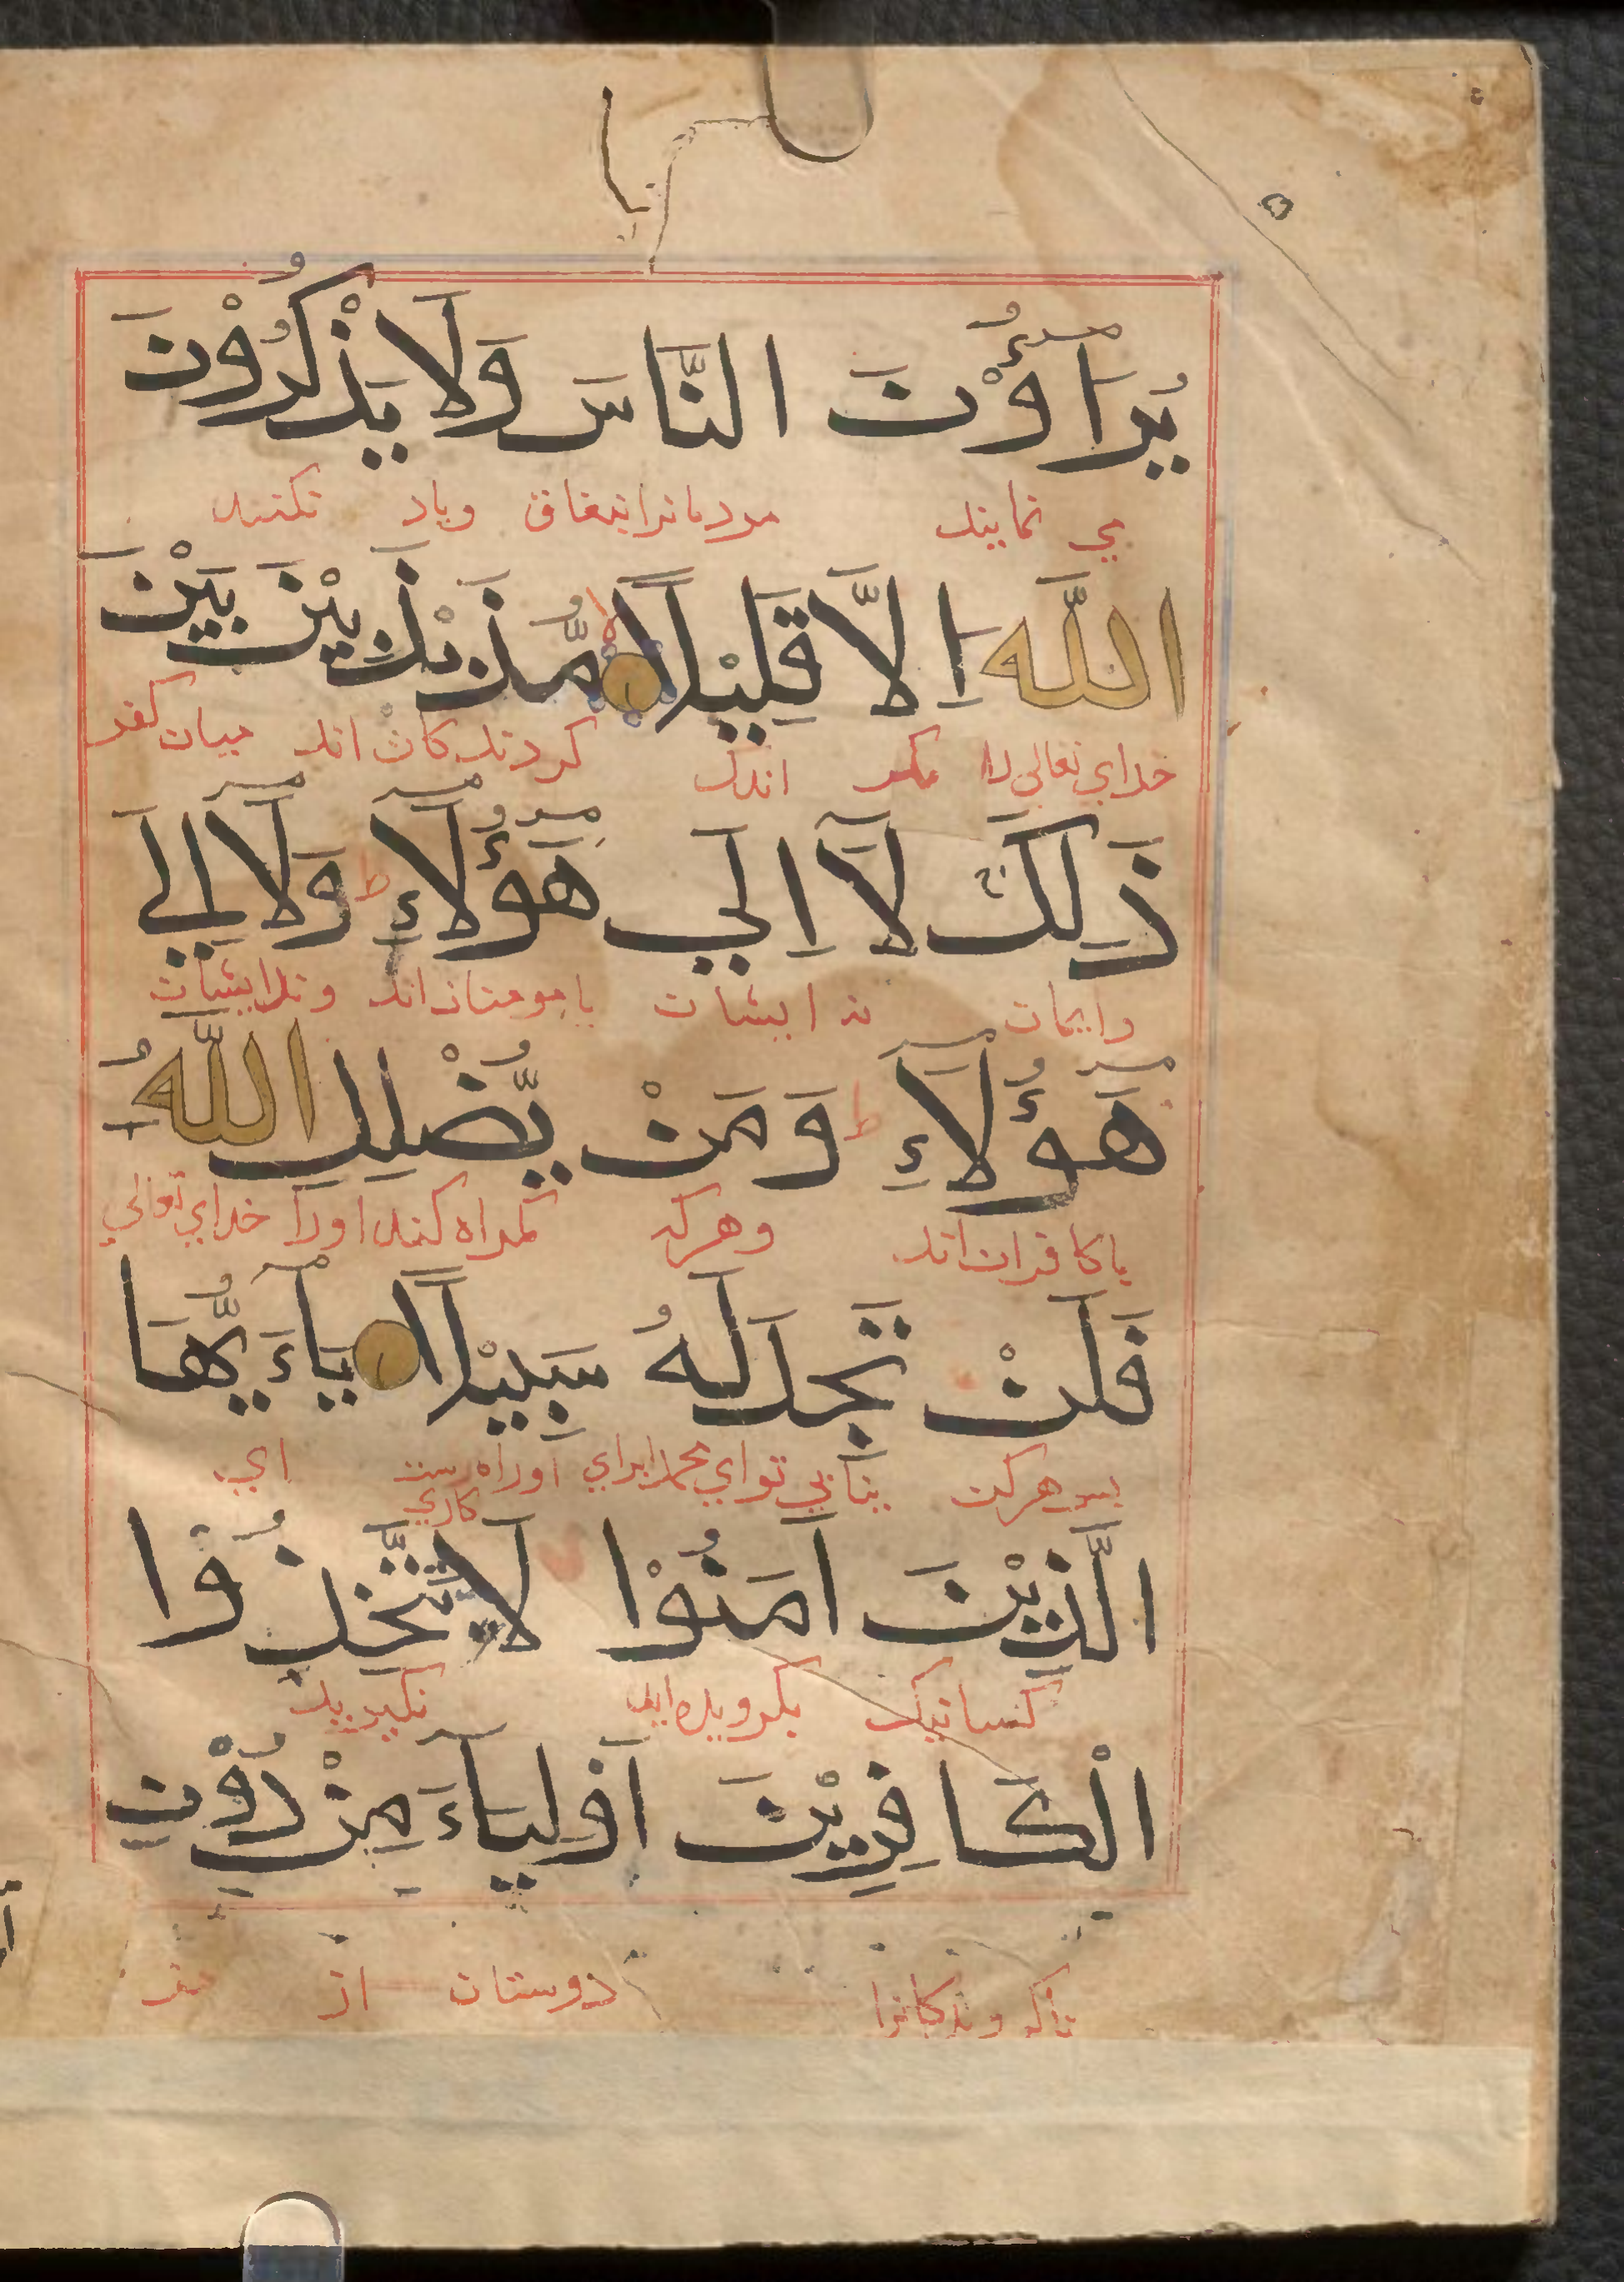 يُرَاؤُنَ النَّاسَ وَلَا يَذْكُرُوْنَ
مي نمايند مردمانرا بنفاق وياد نكنند
اللَّه اِلَّا قَلِيْلًا مُّذَبْذَبِيْنَ بَيْنَ
خداي تعالى را مكر اندك كردندكان اند ميان كفر
ذَلِكَ لَآ اِلَي هَؤُلَآءِ ط وَلَآ اِلَي
وايمان نه ايشان با مومنان اند ونه ايشان
هَؤُلَآءِ ط وَمَنْ يُّضْلِلِ اللَّهُ
با كافران اند وهركه كمراه كند اورا خداي تعالي
فَلَنْ تَجِدَ لَهُ سَبِيْلًا يَآءَيُّهَا
پس هركز نيابي تو اي محمد براي او راه رست اي
كاري
الَّذِيْنَ اٰمَنُوْا لَا تَتَّخِذُوْا
كسانيك بكرويده ايد نكيريد
الْكَافِرِيْنَ اَوْلِيَآءَ مِنْ دُوْنِ
ناكروندكانرا دوستان از